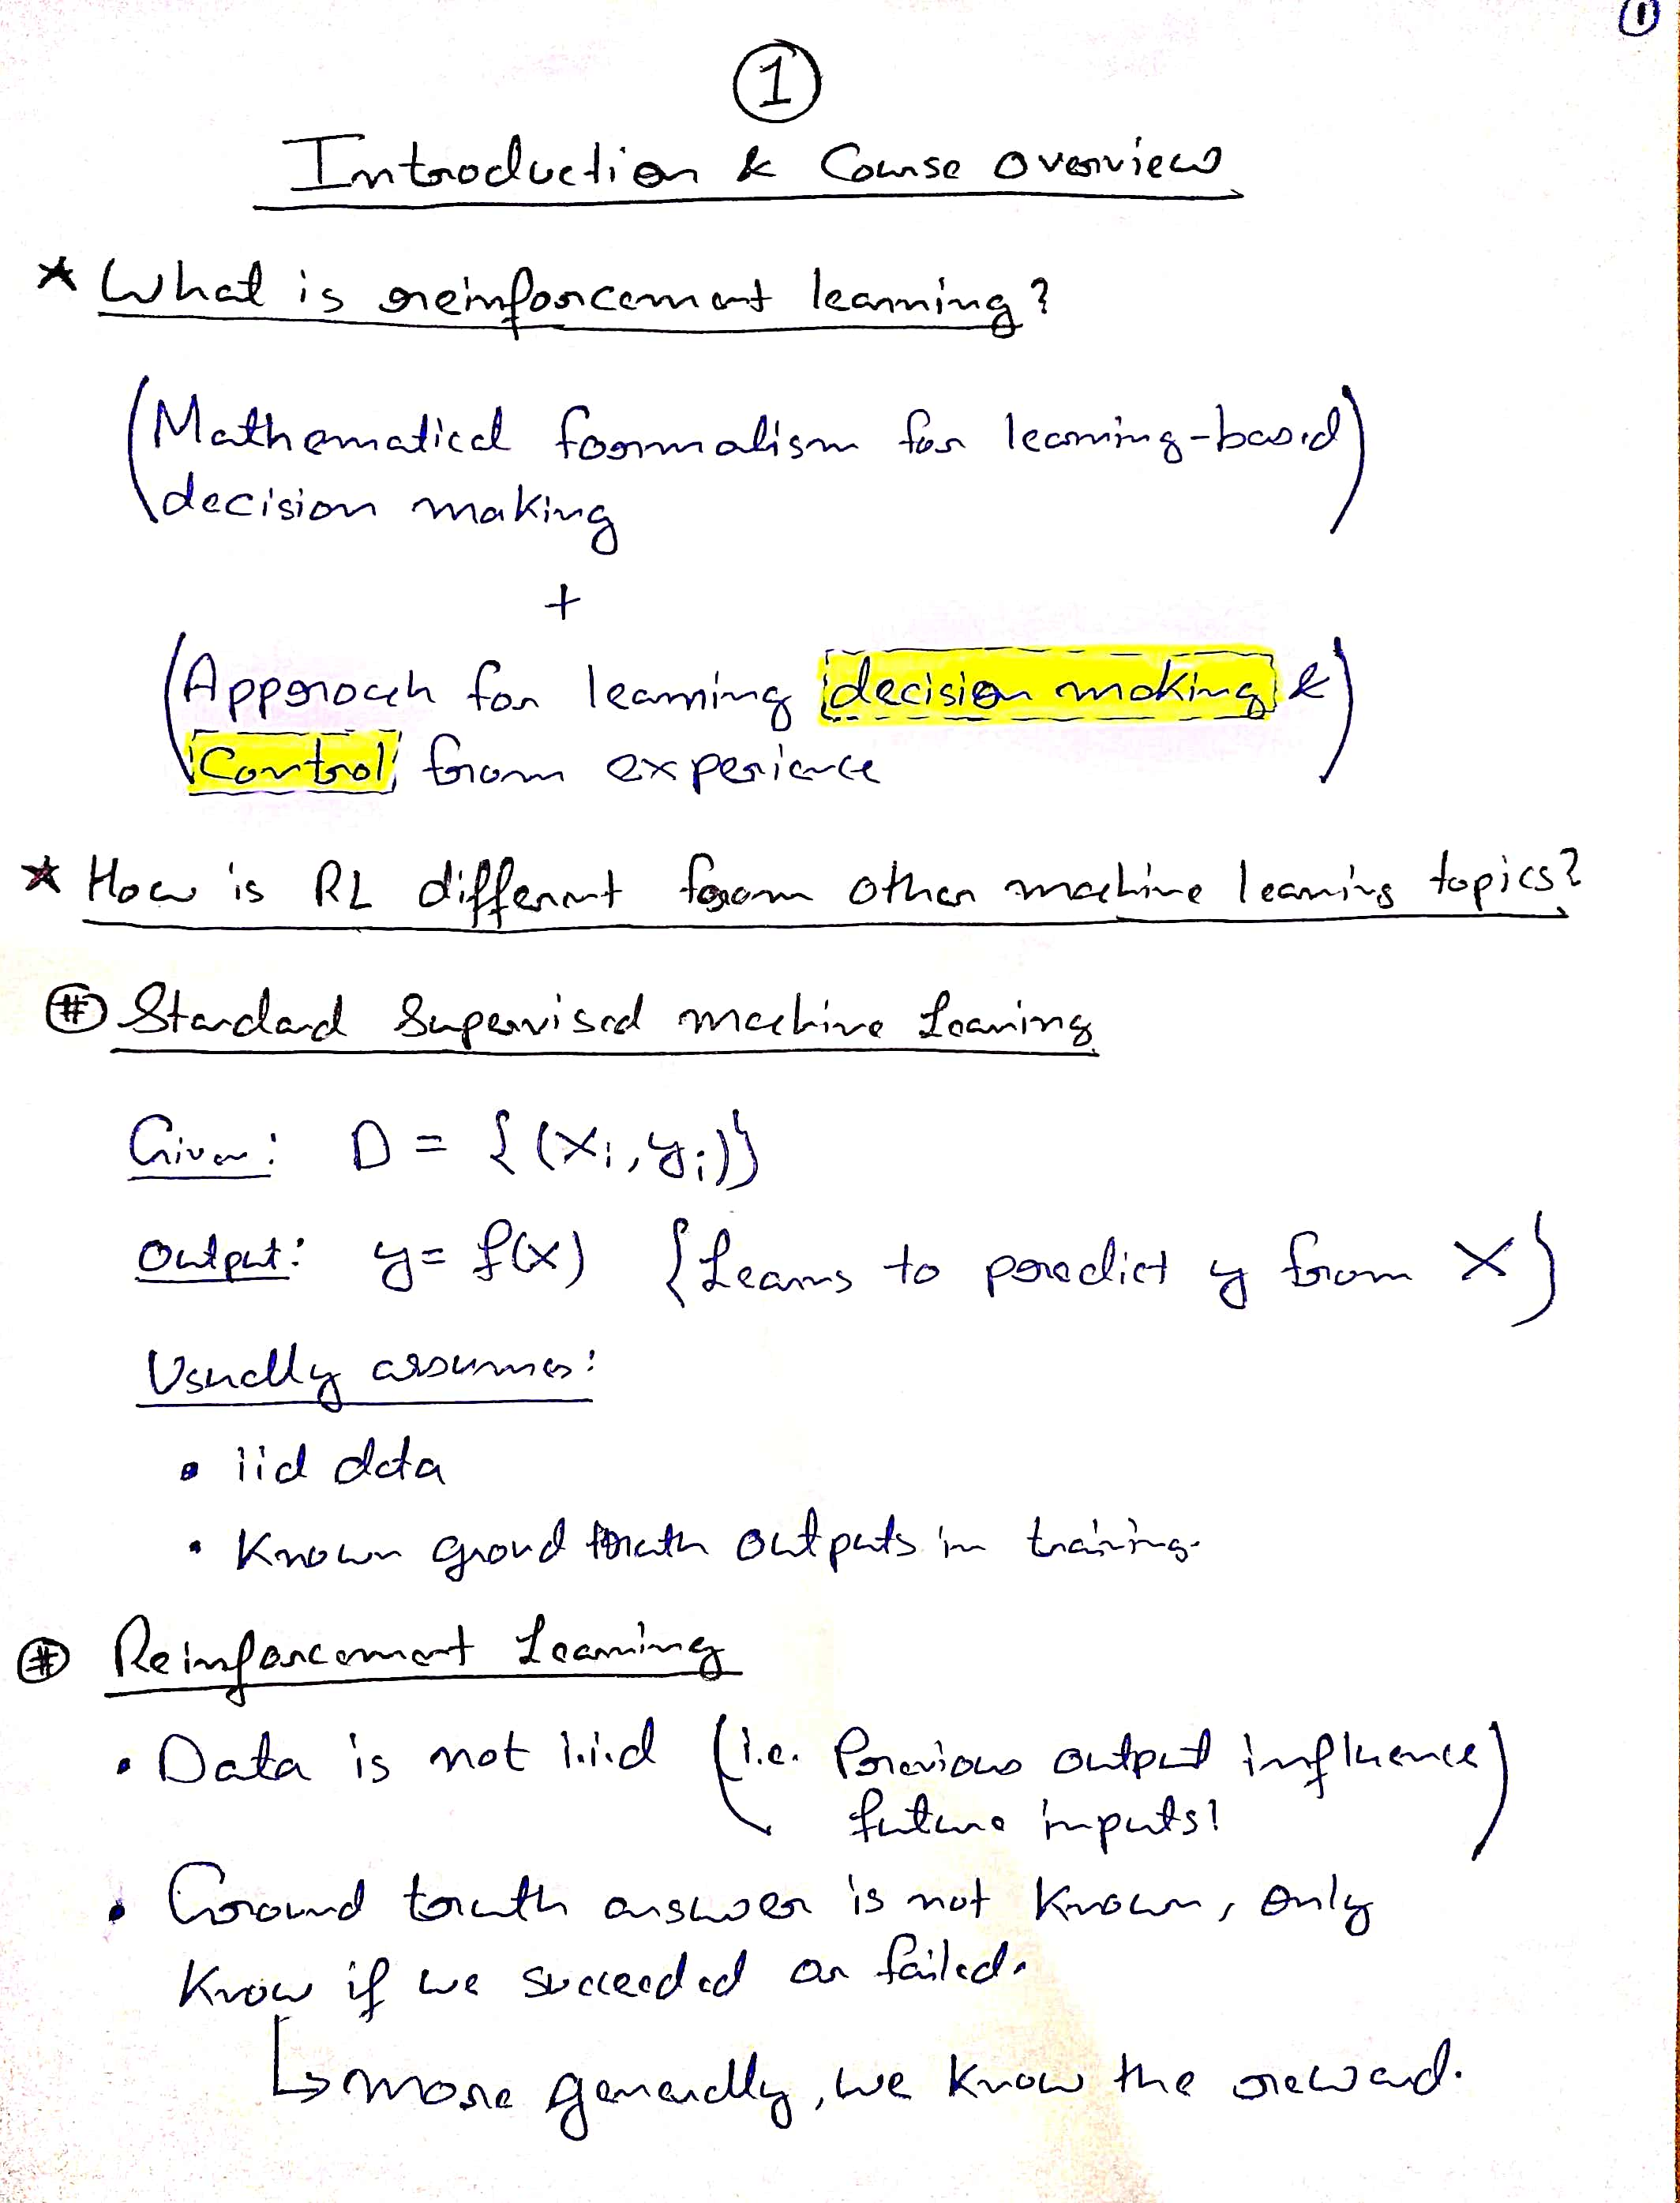 ①
①
Introduction & Course overview
* What is reinforcement learning?
(Mathematical formalism for learning-based
decision making)
+
(Approach for learning decision making &
Control from experience)
* How is RL different from other machine learning topics?
# Standard Supervised machine Learning
Given: D = {(xi, yi)}
Output: y = f(x) {Learns to predict y from x}
Usually assumes:
• iid data
• Known ground truth outputs in training.
# Reinforcement Learning
• Data is not i.i.d (i.e. Previous output influence
future inputs!)
• Ground truth answer is not known, only
know if we succeeded or failed.
↳ more generally, we know the reward.